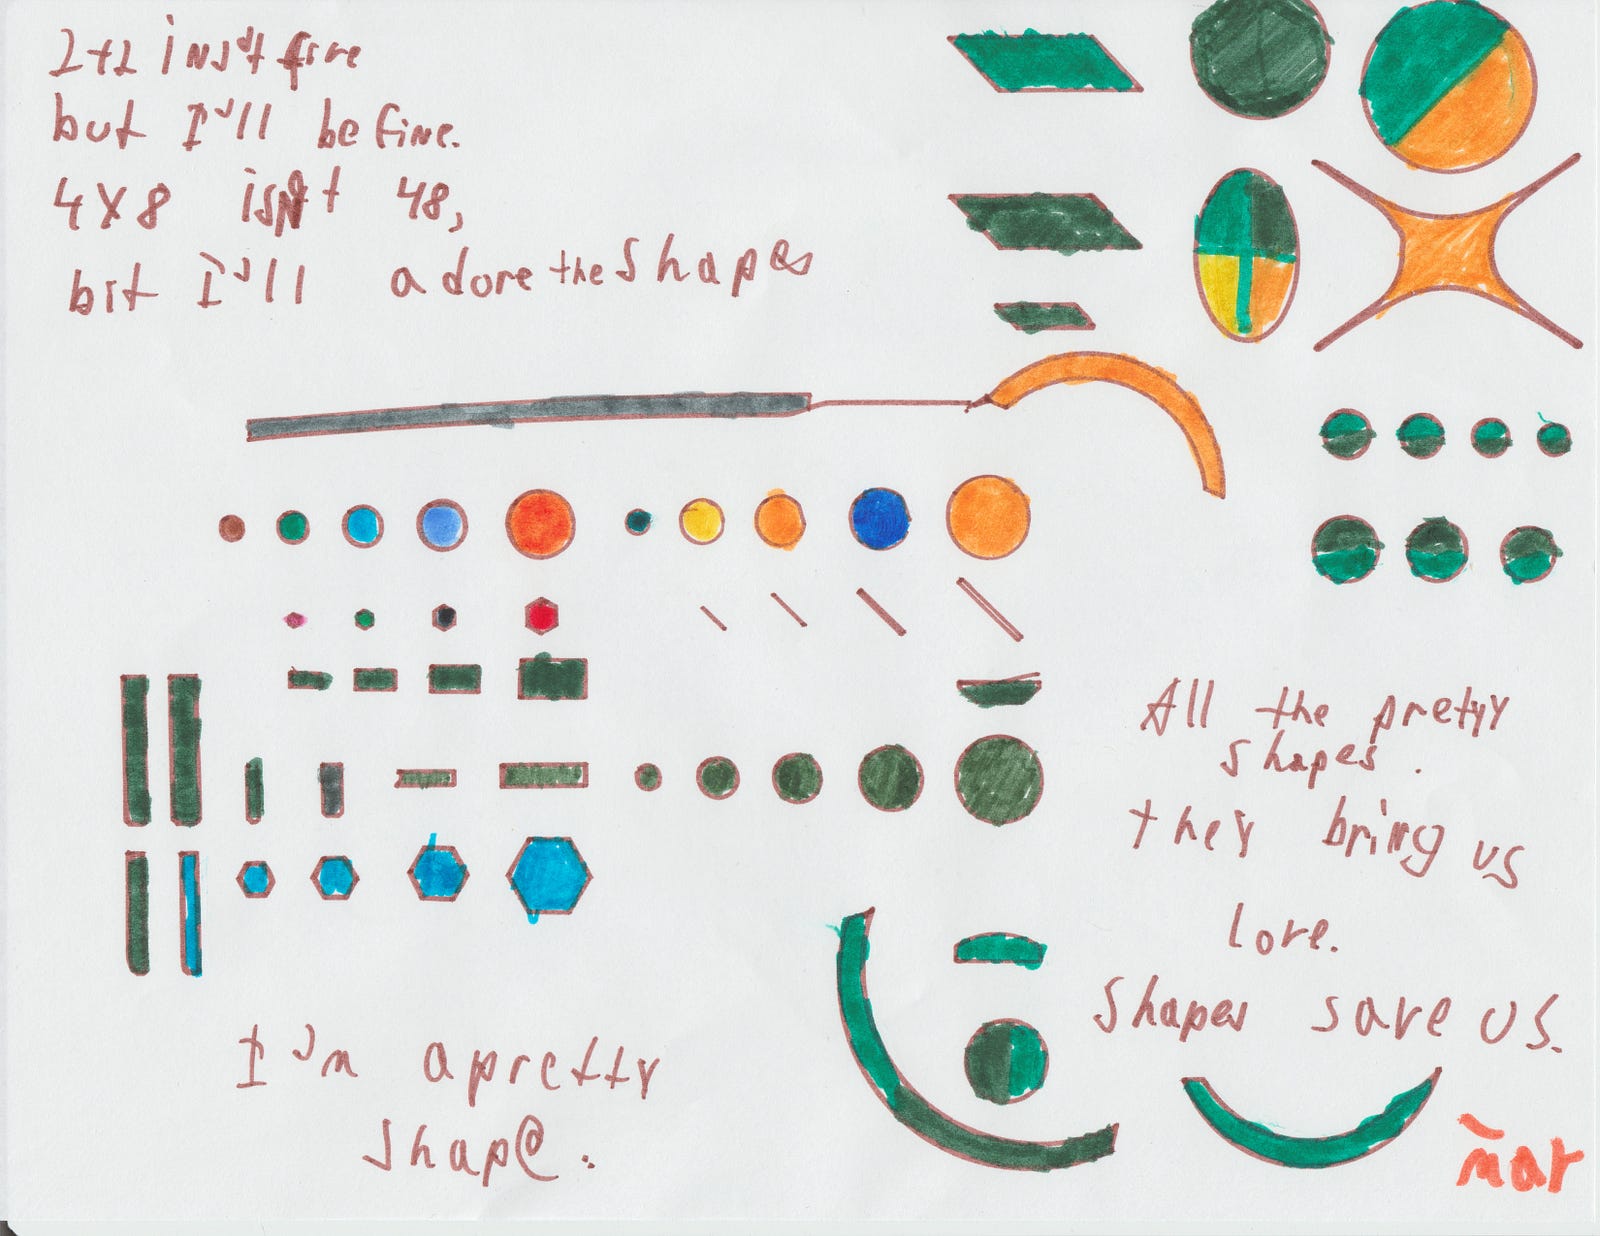 2+2 insn't five
but I'll be fine.
4x8 isn't 48,
bit I'll adore the shapes
All the pretyy
shapes.
they bring us
love.
Shapes save us.
I'm a pretty
shape.
mar